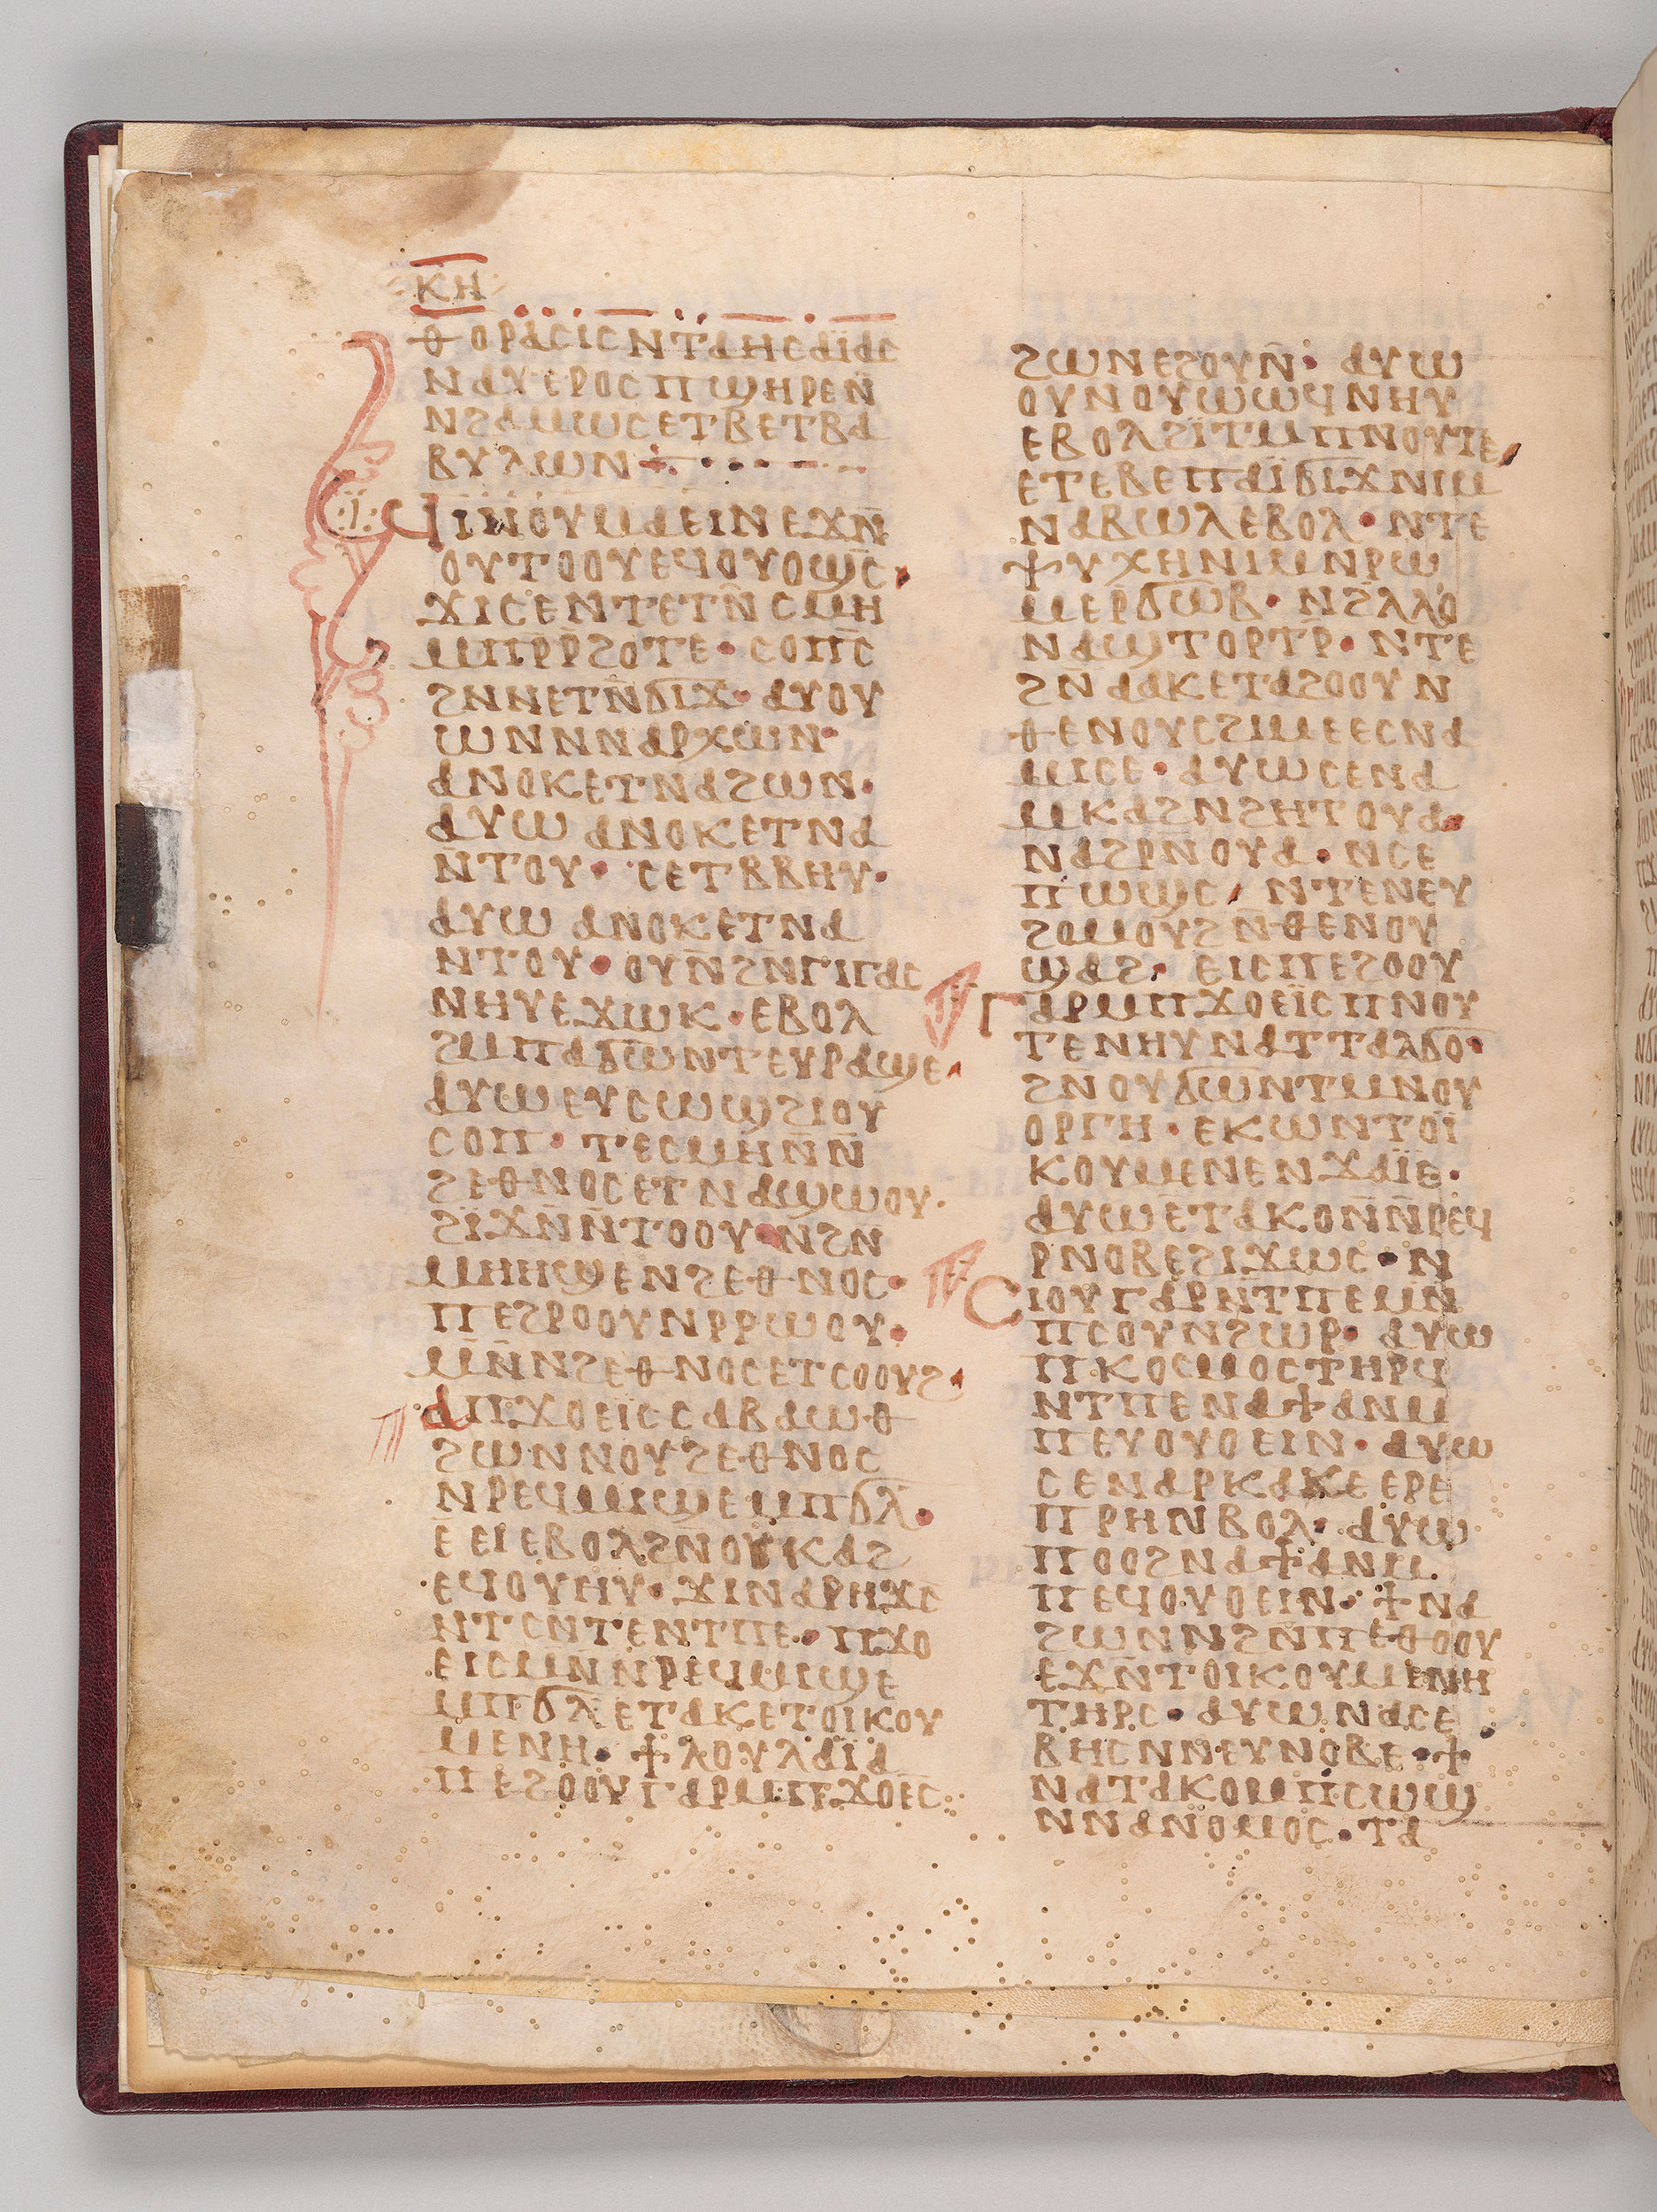 ⲕⲏ
ⲑⲟⲣⲁⲥⲓⲥⲛⲧⲁⲏⲥⲁⲓ̈ⲁⲥ
ⲛⲁⲩⲉⲣⲟⲥⲡϣⲏⲣⲉⲛ̄
ⲛϩⲁⲙⲱⲥⲉⲧⲃⲉⲧⲃⲁ
ⲃⲩⲗⲱⲛ
ϥⲓⲛ̄ⲟⲩⲙⲁⲉⲓⲛⲉϫⲛ̄
ⲟⲩⲧⲟⲟⲩⲉϥⲟⲩⲟϣⲥ̄
ϫⲓⲥⲉⲛⲧⲉⲧⲛ̄ⲥⲙⲏ
ⲙⲡⲣ̄ⲣϩⲟⲧⲉ · ⲥⲟⲡⲥ̄
ϩⲛⲛⲉⲧⲛ̄ϭⲓϫ · ⲁⲩⲟⲩ
ⲱⲛⲛⲛⲁⲣⲭⲱⲛ ·
ⲁⲛⲟⲕⲉⲧⲛⲁϩⲱⲛ ·
ⲁⲩⲱ ⲁⲛⲟⲕⲉⲧⲛⲁ
ⲛ̄ⲧⲟⲩ · ⲥⲉⲧⲃⲃⲏⲩ ·
ⲁⲩⲱ ⲁⲛⲟⲕⲉⲧⲛⲁ
ⲛⲧⲟⲩ · ⲟⲩⲛ̄ϩⲛ̄ⲅⲓⲅⲁⲥ
ⲛⲏⲩⲉϫⲱⲕ · ⲉⲃⲟⲗ
ϩⲙⲡⲁϭⲱⲛⲧⲉⲩⲣⲁϣⲉ ·
ⲁⲩⲱⲉⲩⲥⲱⲱϣϩⲓⲟⲩ
ⲥⲟⲡ · ⲧⲉⲥⲙⲏⲛ̄ⲛ̄
ϩⲉⲑⲛⲟⲥⲉⲧⲛⲁϣⲱⲟⲩ ·
ϩⲓ̈ϫⲛ̄ⲛ̄ⲧⲟⲟⲩ · ⲛ̄ϩⲛ̄
ⲙⲏⲏϣⲉⲛϩⲉⲑⲛⲟⲥ ·
ⲡⲉϩⲣⲟⲟⲩⲛⲣⲣⲱⲟⲩ ·
ⲙⲛ̄ⲛ̄ϩⲉⲑⲛⲟⲥⲉⲧⲥⲟⲟⲩϩ ·
ⲁⲡϫⲟⲉⲓ̈ⲥⲥⲁⲃⲁⲱⲑ
ϩⲱⲛⲛⲟⲩϩⲉⲑⲛⲟⲥ
ⲛⲣⲉϥⲙⲓϣⲉⲙⲡϭⲗ̄ ·
ⲉ̄ⲉⲓⲉⲃⲟⲗϩⲛ̄ⲟⲩⲕⲁϩ
ⲉϥⲟⲩⲏⲩ · ϫⲓⲛⲁⲣⲏϫⲥ̄
ⲛⲧⲥⲛⲧⲉⲛⲧⲡⲉ · ⲡϫⲟ
ⲉⲓⲥⲙⲛⲛⲣⲉϥⲙⲓϣⲉ
ⲙⲡϭⲗ̄ⲉⲧⲁⲕⲉⲧⲟⲓⲕⲟⲩ
ⲙⲉⲛⲏ · ϯⲗⲟⲩⲗⲁⲓ̈ⲁ
ⲡⲉϩⲟⲟⲩⲅⲁⲣⲙⲡϫⲟⲉⲓⲥ
ϩⲱⲛⲉϩⲟⲩⲛ̄ · ⲁⲩⲱ
ⲟⲩⲛⲟⲩⲱⲱϥⲛⲏⲩ
ⲉⲃⲟⲗϩⲓ̈ⲧⲙⲡⲛⲟⲩⲧⲉ
ⲉⲧⲉⲃⲉⲡⲁⲓ̈ϭⲓϫⲛⲓⲙ
ⲛⲁⲃⲱⲗⲉⲃⲟⲗ · ⲛⲧⲉ
ⲯⲩⲭⲏⲛⲓⲙⲛⲣⲱ
ⲙⲉⲣϭⲱⲃ · ⲛϩⲗ̄ⲗⲟ
ⲛⲁϣⲧⲟⲣⲧⲣ̄ · ⲛⲧⲉ
ϩⲛ̄ⲁⲁⲕⲉⲧⲁϩⲟⲟⲩⲛ
ⲑⲉⲛⲟⲩⲥϩⲓⲙⲉⲉⲥⲛⲁ
ⲙⲓⲥⲉ · ⲁⲩⲱⲥⲉⲛⲁ
ⲙⲕⲁϩⲛϩⲏⲧⲟⲩⲁ ·
ⲛⲁϩⲣⲛ̄ⲟⲩⲁ · ⲛⲥⲉ
ⲡⲱϣⲥ ⲛⲧⲉⲛⲉⲩ
ϩⲟⲙⲟⲩϩⲛ̄ⲑⲉⲛⲟⲩ
ϣⲁϩ · ⲉⲓⲥⲡⲉϩⲟⲟⲩ
ⲅⲁⲣⲙⲡϫⲟⲉⲓ̈ⲥⲡⲛⲟⲩ
ⲧⲉⲛⲏⲩⲛⲁⲧⲧⲁⲗϭⲟ ·
ϩⲛ̄ⲟⲩϭⲱⲛⲧⲙⲛⲟⲩ
ⲟⲣⲅⲏ · ⲉⲕⲱⲛⲧⲟⲓ̈
ⲕⲟⲩⲙⲉⲛⲉⲛϫⲁⲓ̈ⲉ ·
ⲁⲩⲱⲉⲧⲁⲕⲟⲛ̄ⲛ̄ⲣⲉϥ
ⲣⲛⲟⲃⲉϩⲓϫⲱⲥ · ⲛ
ⲥⲓⲟⲩⲅⲁⲣⲛ̄ⲧⲡⲉⲙⲛ̄
ⲡⲥⲟⲩⲛϩⲱⲣ · ⲁⲩⲱ
ⲡⲕⲟⲥⲙⲟⲥⲧⲏⲣϥ
ⲛⲧⲡⲉⲛⲁϯⲁⲛⲙ
ⲡⲉⲩⲟⲩⲟⲉⲓⲛ · ⲁⲩⲱ
ⲥⲉⲛⲁⲣⲕⲁⲕⲉⲉⲣⲉ
ⲡⲣⲏⲛⲃⲟⲗ · ⲁⲩⲱ
ⲡⲟⲟϩⲛⲁϯⲁⲛⲙ
ⲡⲉϥⲟⲩⲟⲉⲓⲛ · ϯⲛⲁ
ϩⲱⲛⲛϩⲛ̄ⲡⲉⲑⲟⲟⲩ
ⲉϫⲛ̄ⲧⲟⲓⲕⲟⲩⲙⲉⲛⲏ
ⲧⲏⲣⲥ · ⲁⲩⲱⲛⲁⲥⲉ
ⲃⲏⲥⲛⲛⲉⲩⲛⲟⲃⲉ · ϯ
ⲛⲁⲧⲁⲕⲟⲙⲡⲥⲱϣ
ⲛⲛⲁⲛⲟⲙⲟⲥ · ⲧⲁ